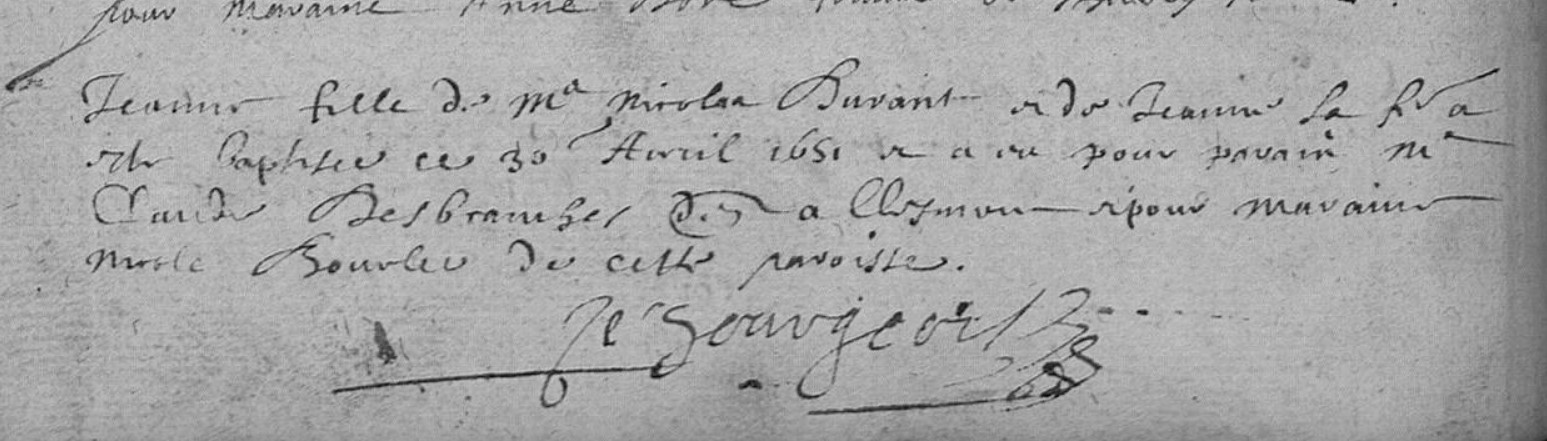 pour maraine Anne
Jeanne fille de Me Nicolas Durant et de Jeanne sa fe a
este baptisee ce 30e Avril 1651 et a eu pour parain Me
Claude Desbranches a Clermont et pour maraine
Nicole Bourlee de cette paroisse.
Bourgeois